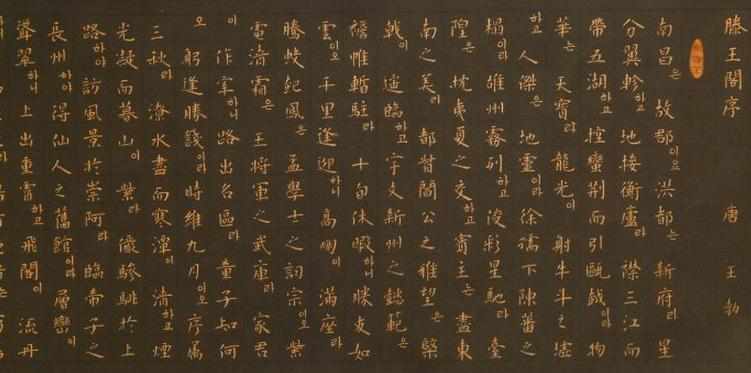 滕王閣序 唐 王勃
南昌은 故郡이요 洪都는 新府라 星
分翼軫하고 地接衡廬라 襟三江而
帶五湖하고 控蠻荊而引甌越이라 物
華는 天寶라 龍光이 射牛斗之墟
하고 人傑은 地靈이라 徐孺下陳蕃之
榻이라 雄州霧列하고 俊彩星馳라 臺
隍은 枕夷夏之交하고 賓主는 盡東
南之美라 都督閻公之雅望은 棨
戟이 遙臨하고 宇文新州之懿範은
襜帷暫駐라 十旬休暇하니 勝友如
雲이오 千里逢迎하니 高朋이 滿座라
騰蛟起鳳은 孟學士之詞宗이오 紫
電淸霜은 王將軍之武庫라 家君
이 作宰하니 路出名區라 童子知何
오 躬逢勝餞이라 時維九月이오 序屬
三秋라 潦水盡而寒潭이 淸하고 煙
光凝而暮山이 紫라 儼驂騑於上
路하야 訪風景於崇阿라 臨帝子之
長州하야 得仙人之舊館이라 層巒이
聳翠하니 上出重霄하고 飛閣이 流丹